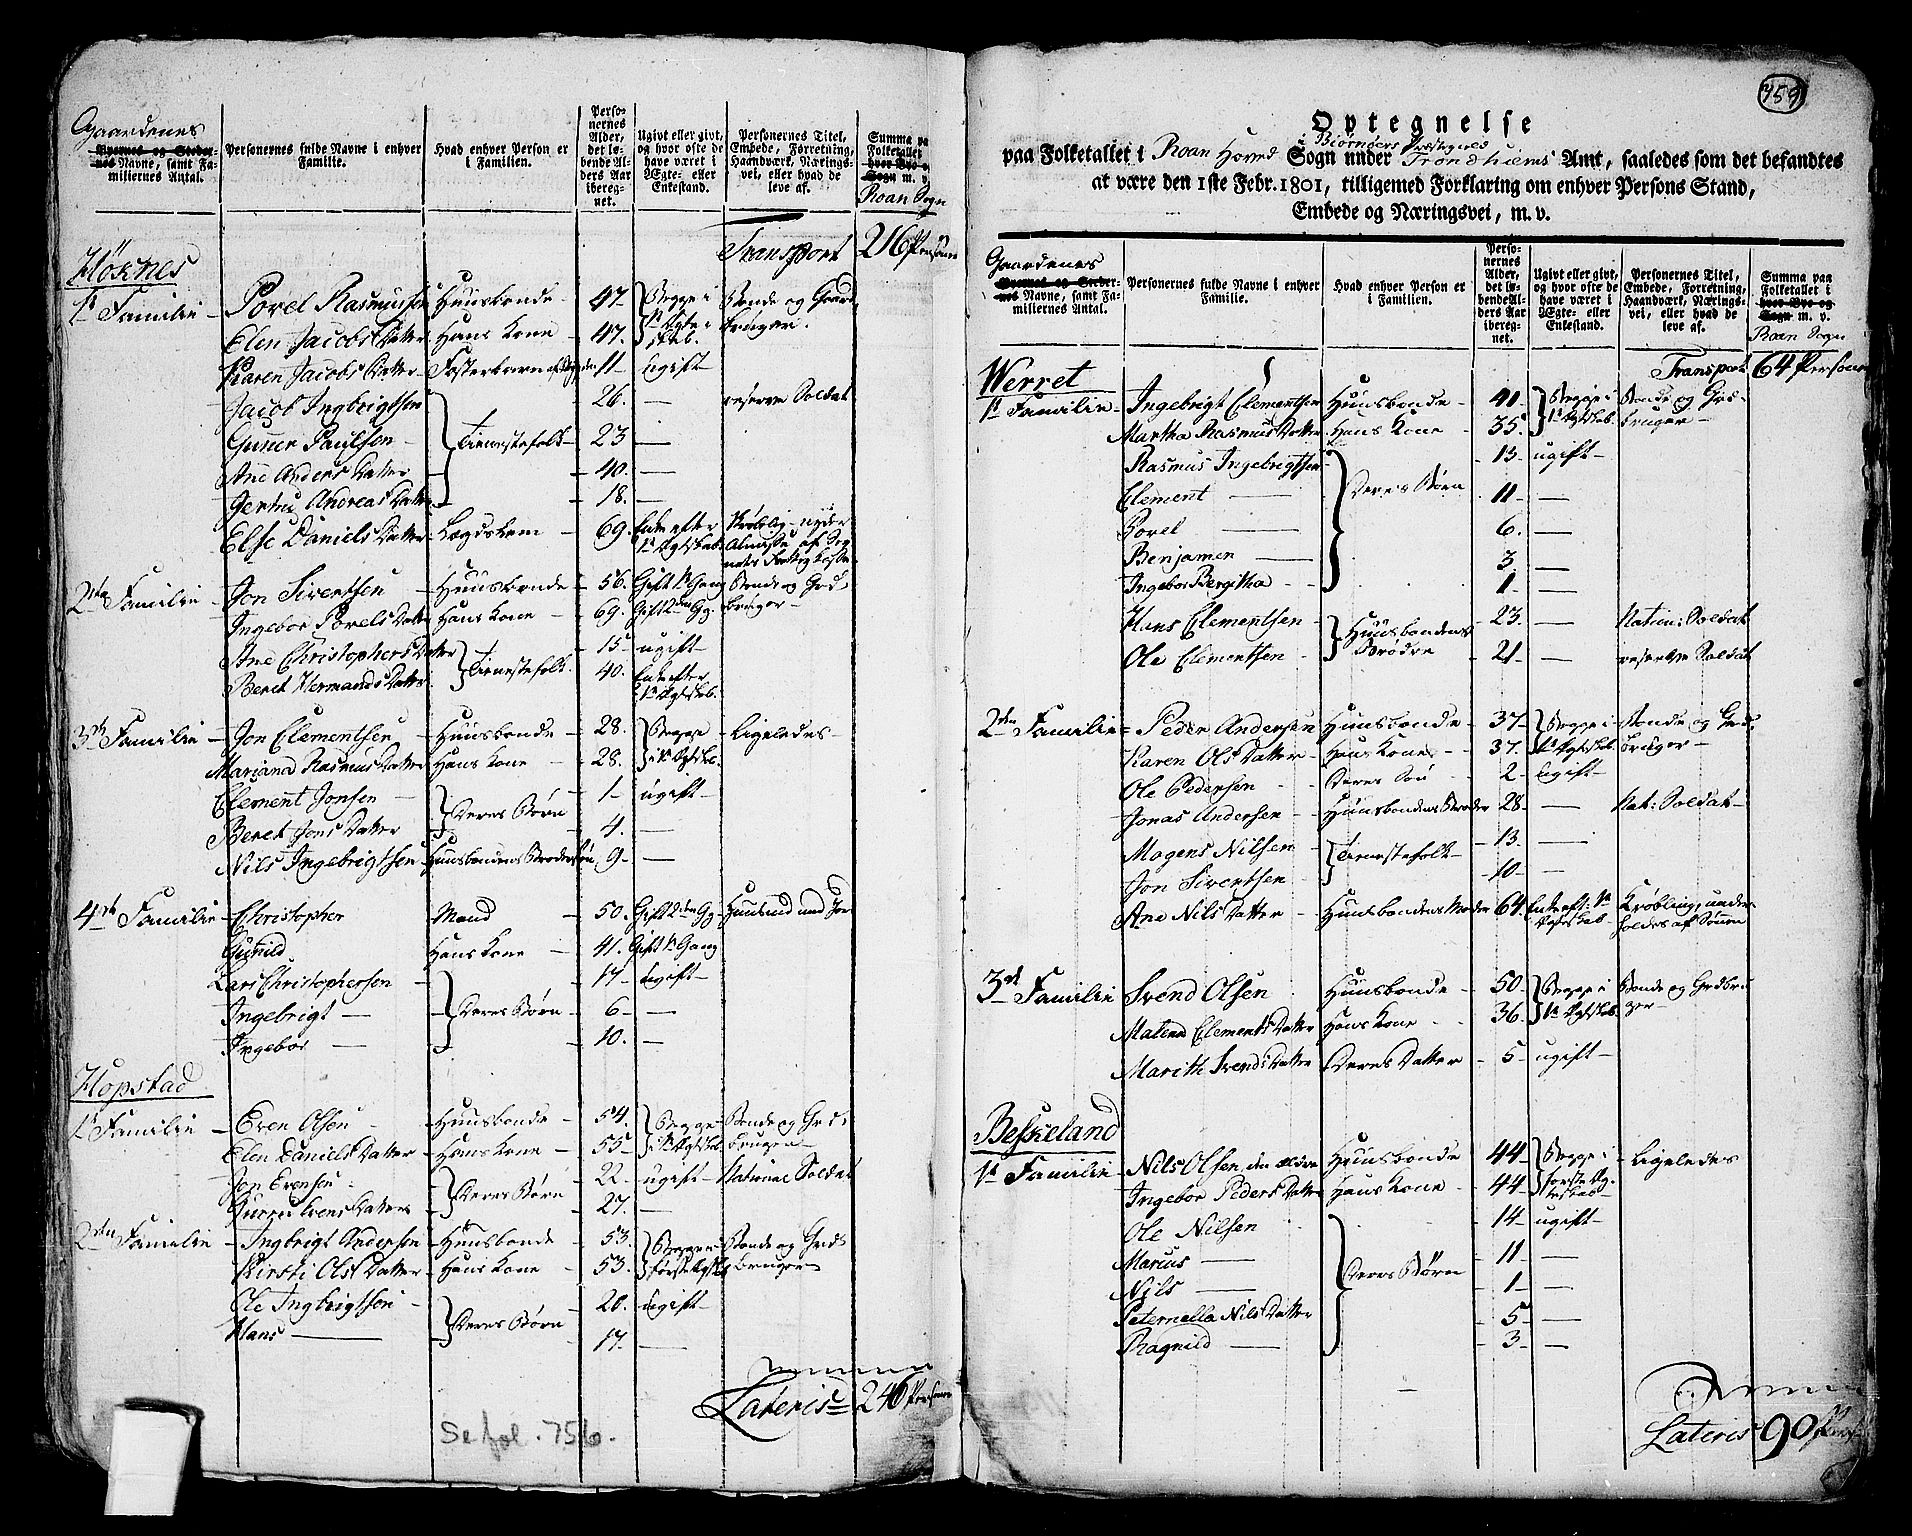 Gaardenes
Byernes og Stedernes Navne, samt Familiernes Antal.
Personernes fulde Navne i enhver Familie.
Hvad enhver Person er i Familien.
Personernes Alder, det løbende Alders Aar iberegnet.
Ugivt eller givt, og hvor ofte de have været i Ægte- eller Enkestand.
Personernes Titel, Embede, Forretning, Haandværk, Næringsvei, eller hvad de leve af.
Summa paa Folketallet i hver Bye og Sogn m. v.
Roan Sogn
Transport 216 Personer
Høknes
1te Familie Povel Rasmussen Huusbonde 47 Begge i 1te Ægteskab. Bonde og Gaardbruger.
Elen Jacobs Datter Hans Kone 47.
Karen Jacobs Datter Fosterbarn 11 Ugift
Jacob Ingbrigtsen Tienestefolk 26. — reserve Soldat
Guner Paulsen 23 —
Ane Anders Datter 40. —
Gertru Andreas Datter 18. —
Else Daniels Datter Lægdslem 69. Enke efter 1te Ægteskab. Krøblig - nyder Almisse af Sognets Fattig Kasse
2den Familie Jon Siventsen Huusbonde 56. Gift 1te Gang Bonde og Grdbruger
Ingebor Povels Datter Hans Kone 69. Gift 2den Gg.
Ane Christophers Datter Tienestefolk 15 ugift
Beret Hermands Datter 40. Enke efter 1te Ægteskab.
3die Familie Jon Clementsen Huusbonde 28. Begge i 1te Ægteskab. Ligeledes
Mariana Rasmus Datter Hans Kone 28.
Clement Jonsen Deres Børn 1 ugift
Beret Jons Datter 4. —
Nils Ingebrigtsen Huusbondens Brodersøn 9 —
4de Familie Christopher Mand 50. Gift 2den Gg Huusmand med Jord
Gunild Hans Kone 41. Gift 1te Gang
Lars Christophersen Deres Børn 17 Ugift
Ingebrigt — 6 —
Ingebor — 10. —
Hopstad
1te Familie Even Olsen Huusbonde 54. Begge i 1te Ægteskab. Bonde og Grdbruger
Elen Daniels Datter Hans Kone 55
Jon Evensen Deres Børn 22 ugift National Soldat
Gurru Evens Datter 27. —
2den Familie Ingbrigt Andersen Huusbonde 53. Begge i første Ægtesk. Bonde og Grdbruger
Kirsti Ols Datter Hans Kone 53.
Ole Ingbrigtsen Deres Børn 20. Ugift
Hans — 17. —
Lateris 246 Personer
Se fol. 756.
759
Optegnelse
paa Folketallet i Roan Hovd Sogn under i Biørnøers Præstegield Trondhiems Amt, saaledes som det befandtes
at være den 1ste Febr. 1801, tilligemed Forklaring om enhver Persons Stand,
Embede og Næringsvei, m. v.
Gaardenes
Byernes og Stedernes Navne, samt Familiernes Antal.
Personernes fulde Navne i enhver Familie.
Hvad enhver Person er i Familien.
Personernes Alder, det løbende Alders Aar iberegnet.
Ugivt eller givt, og hvor ofte de have været i Ægte- eller Enkestand.
Personernes Titel, Embede, Forretning, Haandværk, Næringsvei, eller hvad de leve af.
Summa paa Folketallet i hver Bye og Sogn m. v.
Roan Sogn
Transport 64 Personer
Werret
1te Familie Ingebrigt Clementsen Huusbonde 41. Begge i 1te Ægtskab. Bonde og Grdbruger
Martha Rasmus Datter Hans Kone 35.
Rasmus Ingebrigtsen Deres Børn 13 ugift
Clement — 11 —
Povel — 6. —
Benjamen — 3 —
Ingebor Bergitha 1 —
Hans Clementsen Huusbondens Brødre 23. — Nation: Soldat
Ole Clementsen 21 — reserve Soldat
2den Familie Peder Andersen Huusbonde 37 Begge i 1te Ægtskab. Bonde og Grdbruger
Karen Ols Datter Hans Kone 37.
Ole Pedersen Deres Søn 2 Ugift
Jonas Andersen Huusbondens Broder 28 — Nat: Soldat
Mogens Nilsen Tienestefolk 13. —
Jon Siventsen 10 —
Ane Nils Datter Huusbondens Moder 64. Enke eft: 1te Ægteskab Krøbling, underholdes af Sønen
3die Familie Svend Olsen Huusbonde 50. Begge i 1te Ægtskab. Bonde og Grdbruger
Malena Clements Datter Hans Kone 36.
Marith Svends Datter Deres Datter 5 ugift
Beskeland
1te Familie Nils Olsen, den ældre Huusbonde 44 Begge i første Ægteskab Ligeledes
Ingebor Peders Datter Hans Kone 44
Ole Nilsen Deres Børn 14 ugift
Marius — 11 —
Nils — 1 —
Peternella Nils Datter 5 —
Ragnild — 3 —
Lateris 90 Personer